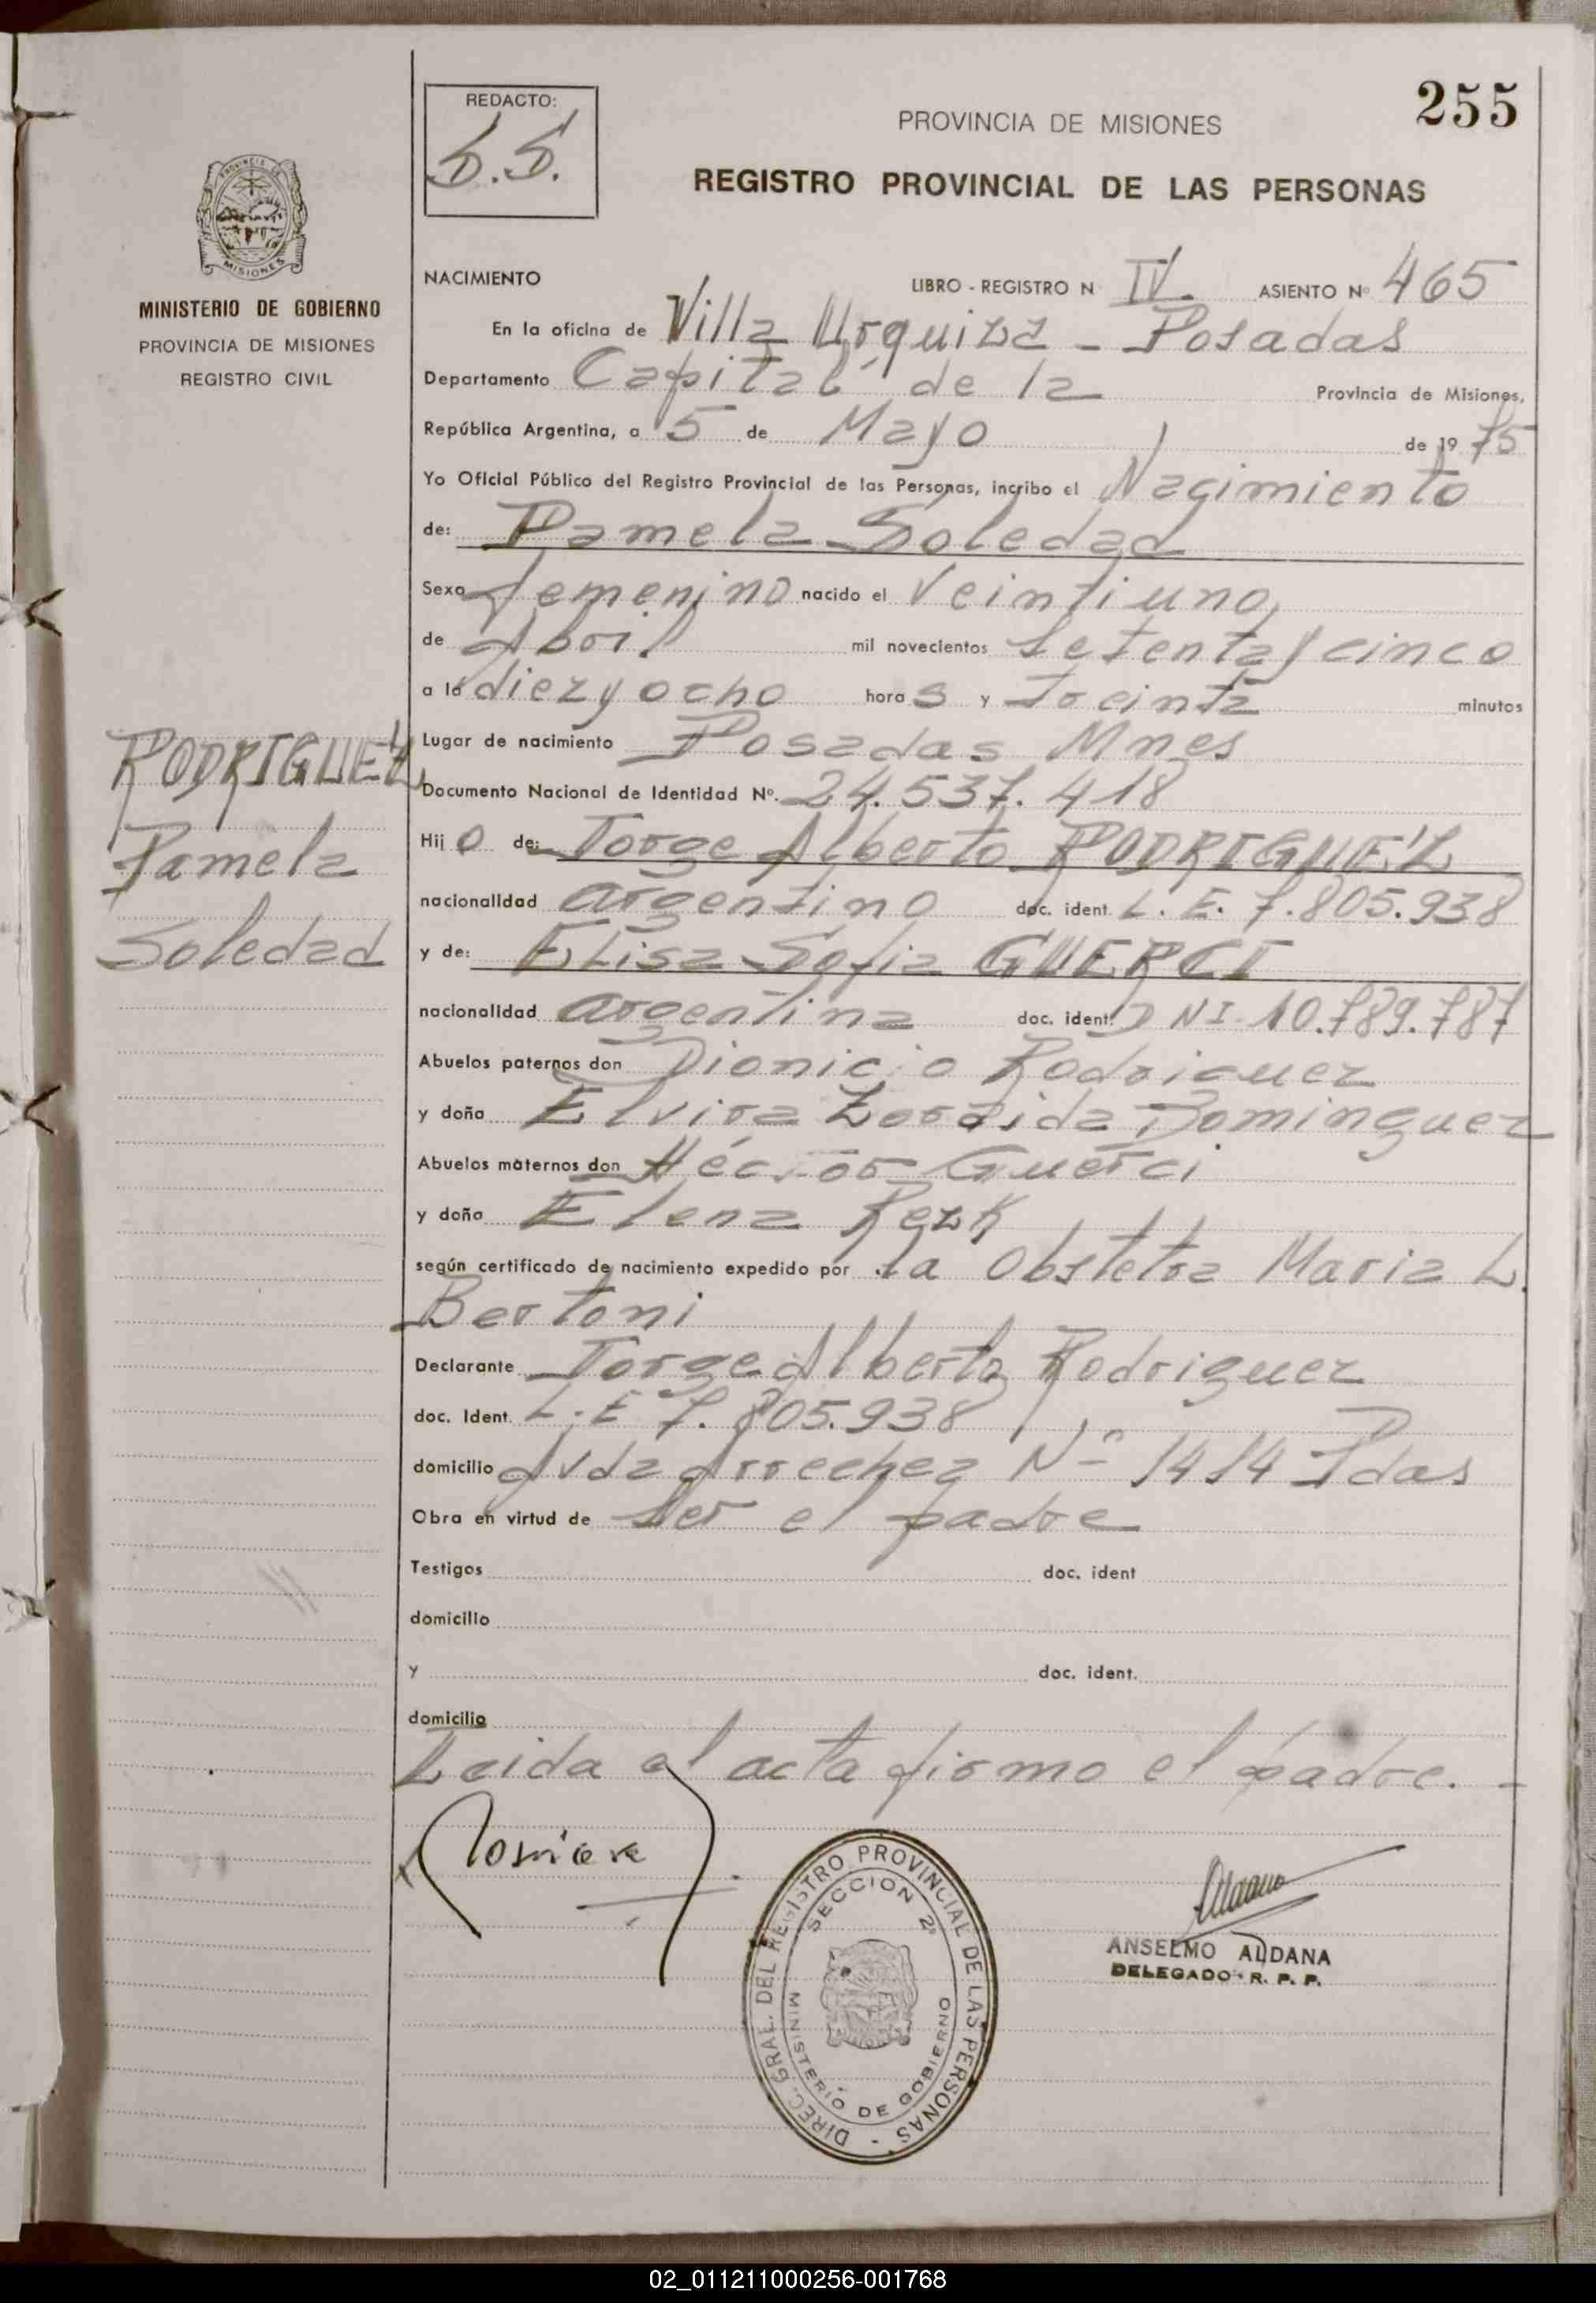 255
REDACTO:
S.S.
PROVINCIA DE MISIONES
REGISTRO PROVINCIAL DE LAS PERSONAS
PROVINCIA DE MISIONES
MINISTERIO DE GOBIERNO
PROVINCIA DE MISIONES
REGISTRO CIVIL
NACIMIENTO LIBRO - REGISTRO N IV. ASIENTO Nº 465
En la oficina de Villa Urquiza - Posadas
Departamento Capital de la Provincia de Misiones,
República Argentina, a 5 de Mayo de 19 75
Yo Oficial Público del Registro Provincial de las Personas, incribo el Nacimiento
de: Pamela Soledad
Sexo femenino nacido el Veintiuno
de Abril mil novecientos setenta y cinco
a la diez y ocho hora s y treinta minutos
Lugar de nacimiento Posadas Mnes
Documento Nacional de Identidad Nº. 24.537.418
Hij o de: Jorge Alberto RODRIGUEZ
nacionalidad argentino doc. ident. L. E. 7.805.938
y de: Elisa Sofia GUERCI
nacionalidad argentina doc. ident. D NI. 10.789.787
Abuelos paternos don Dionicio Rodriguez
y doña Elvira Zoraida Dominguez
Abuelos maternos don Héctor Guerci
y doña Elena Rezk
según certificado de nacimiento expedido por la Obstetra Maria L.
Bertoni
Declarante Jorge Alberto Rodriguez
doc. Ident. L. E 7.805.938
domicilio Avda Arrechea Nº 1414 Pdas
Obra en virtud de ser el padre
Testigos doc. ident
domicilio
y doc. ident.
domicilio
Leida el acta firmo el padre. -
RODRIGUEZ
Pamela
Soledad
DIREC. GRAL. DEL REGISTRO PROVINCIAL DE LAS PERSONAS -
SECCION 2ª
MINISTERIO DE GOBIERNO
ANSELMO ALDANA
DELEGADO - R. P. P.
02_011211000256-001768